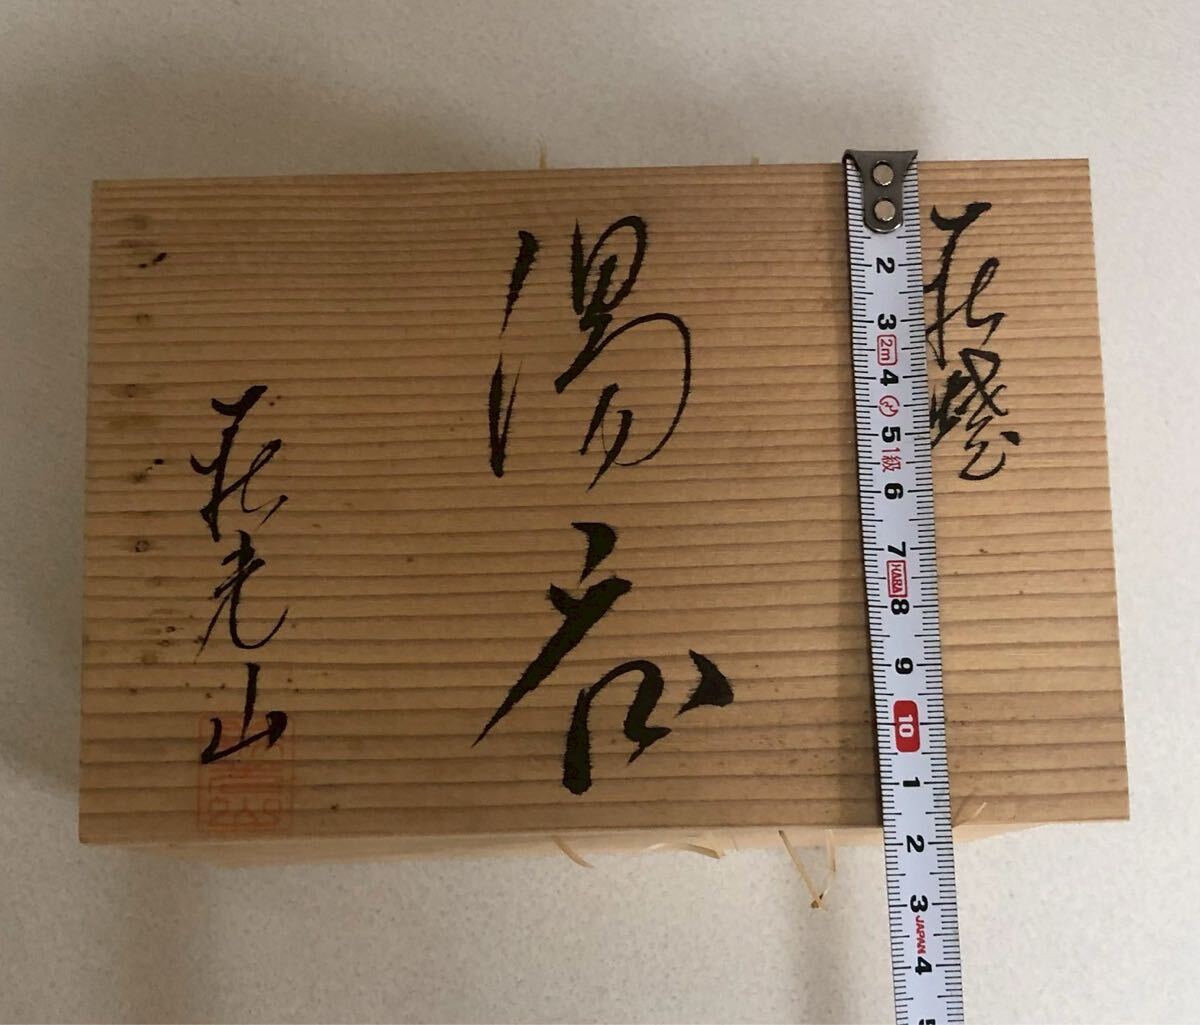 萩焼
湯呑
萩光山
2 3 2m 4 5 1級 6 7 HARA 8 9 10 1 2 3 JAPAN 4 5